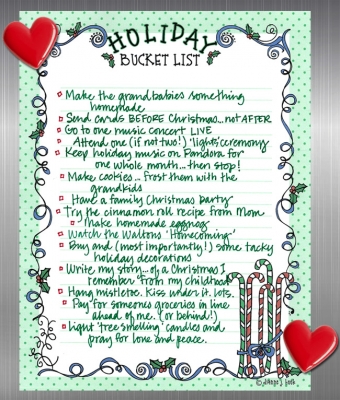 HOLIDAY
BUCKET LIST
Make the grandbabies something
homemade
Send cards BEFORE Christmas...not AFTER
Go to one music concert LIVE
Attend one (if not two!) 'lights' ceremony
Keep holiday music on Pandora for
one whole month...then stop!
Make cookies... frost them with the
grandkids
Have a family Christmas party
Try the cinnamon roll recipe from Mom
Make homemade eggnog
Watch the Waltons 'Homecoming'
Buy and (most importantly!) some tacky
holiday decorations
Write my story...of a Christmas I
remember from my childhood
Hang mistletoe. Kiss under it. Lots.
Pay for someones groceries in line
ahead of me. (or behind!)
Light 'tree smelling' candles and
pray for love and peace.